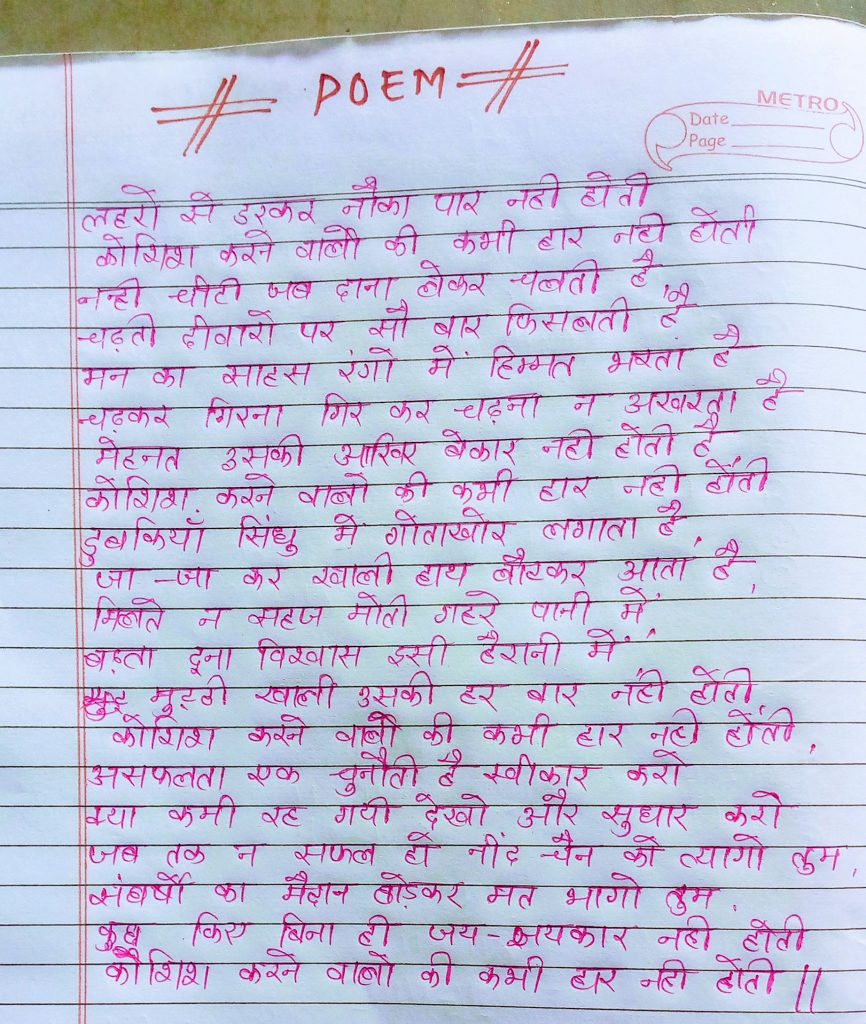 POEM
METRO
Date
Page
लहरो से डरकर नौका पार नही होती
कोशिश करने वालो की कभी हार नही होती
नन्ही चीटी जब दाना लेकर चलती है
चढ़ती दीवारो पर सौ बार फिसलती है
मन का साहस रंगो में हिम्मत भरता है
चढ़कर गिरना गिर कर चढ़ना न अखरता है
मेहनत उसकी आखिर बेकार नही होती है
कोशिश करने वालो की कभी हार नही होती
डुबकियाँ सिंधु में गोताखोर लगाता है,
जा-जा कर खाली हाथ लौटकर आता है,
मिलते न सहज मोती गहरे पानी में,
बढ़ता दूना विश्वास इसी हैरानी में,
मुट्ठी खाली उसकी हर बार नही होती,
कोशिश करने वालो की कभी हार नही होती,
असफलता एक चुनौती है स्वीकार करो
क्या कमी रह गयी देखो और सुधार करो
जब तक न सफल हो नींद चैन को त्यागो तुम,
संघर्षो का मैदान छोड़कर मत भागो तुम,
कुछ किए बिना ही जय-जयकार नही होती
कोशिश करने वालो की कभी हार नही होती ||